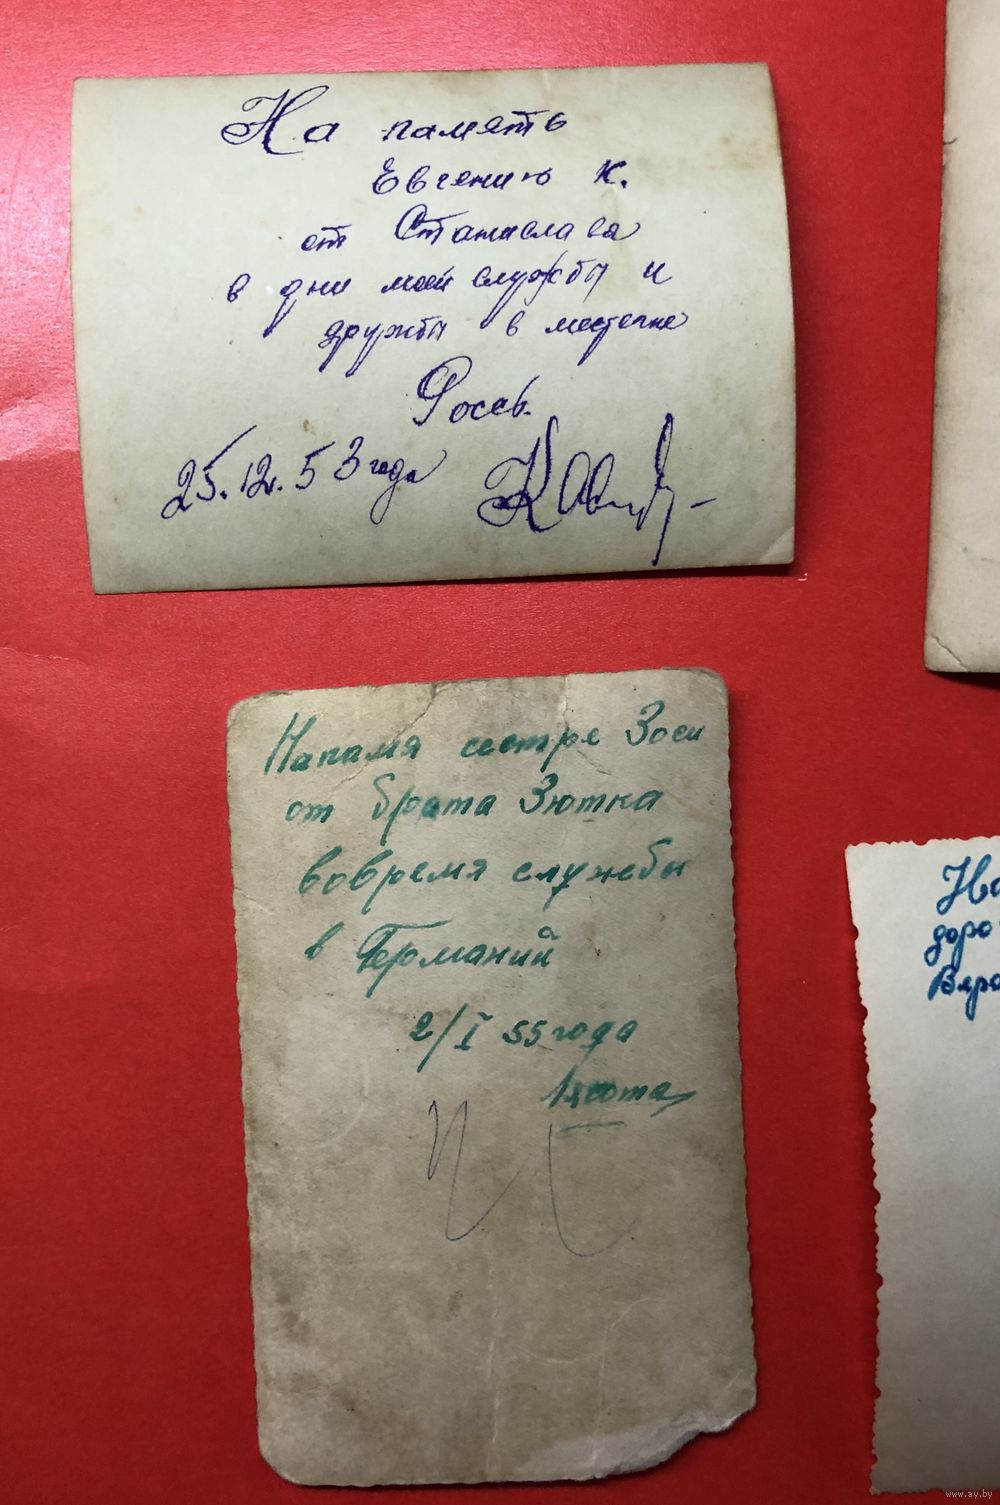 На память
Евгению К.
от Станислава
в дни моей службы и
дружбы в местечке
Россь.
25.12.53 года
Напамя сестре Зоси
от брата Зютка
вовремя службы
в Германий
2/I 55 года
На
доро
Вера
www.ay.by